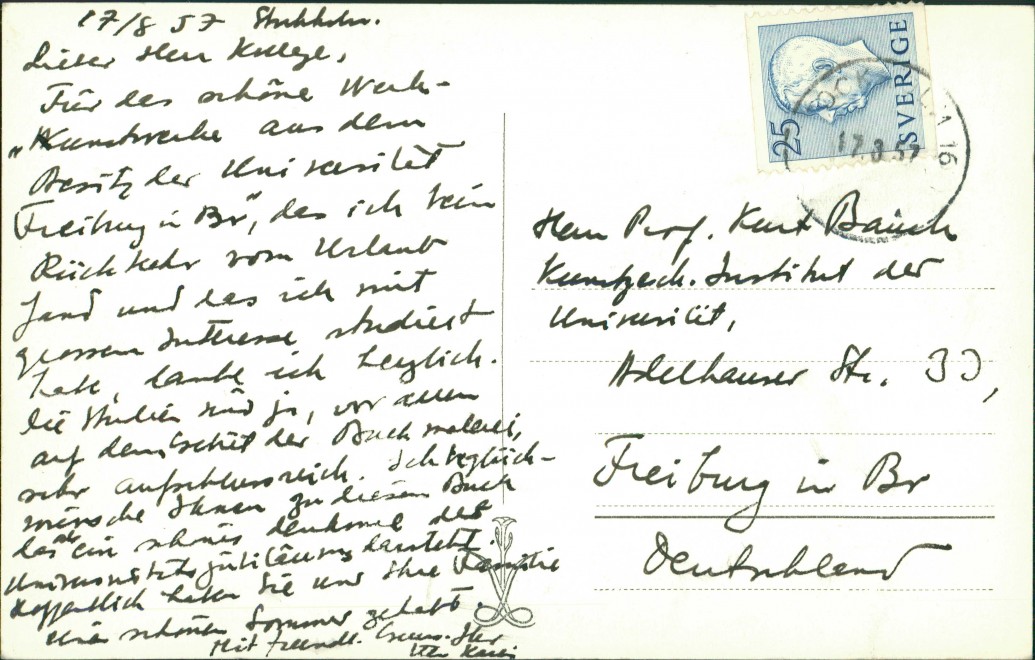 17/8 57 Stockholm.
Lieber Herr Kollege,
Für das schöne Werk-
„Kunstwerke aus dem
Besitz der Universität
Freiburg in Br", das ich bein
Rückkehr vom Urlaub
fand und das ich mit
grossem Interesse studiert
habe, danke ich herzlich.
Die Studien sind ja, vor allem
auf dem Gebiet der Buchmalerei,
sehr aufschlussreich. Ich beglück-
wünsche Ihnen zu diesem Buch
das als ein schönes Denkmal des
Universitätsjubiläums darsteht.
Hoffentlich haben Sie und Ihre Familie
einen schönen Sommer gehabt.
Mit freundl. Gruss. Ihr
25
SVERIGE
17.8.57
16
Herrn Prof. Kurt Bauch
Kunstgesch. Institut der
Universität,
Adelhauser Str. 33,
Freiburg in Br
Deutschland